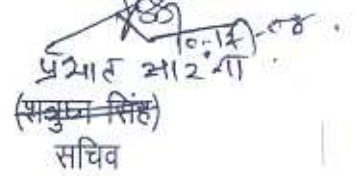 प्रभात सारंगी
(शत्रुघ्न सिंह)
सचिव